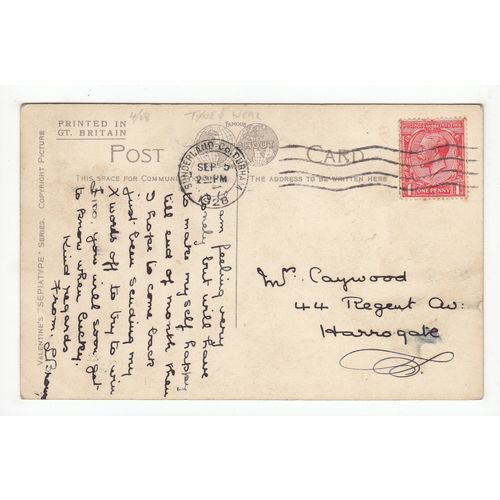 4/28
TYNE & WEAR
PRINTED IN
GT. BRITAIN
FAMOUS
POST CARD
THIS SPACE FOR COMMUN THE ADDRESS TO BE WRITTEN HERE
VALENTINE'S "SEPIATYPE" SERIES. COPYRIGHT PICTURE
SUNDERLAND CO. DURHAM
SEP 5
PM
1928
POSTAGE REVENUE
ONE PENNY
am feeling very
lonely but will have
to make myself happy
till end of month then
I hope to come back
Just been sending my
X words off to try to win
£100. you will soon get
to know when lucky.
Kind regards
From,
Mr. Caywood
44 Regent Av:
Harrogate